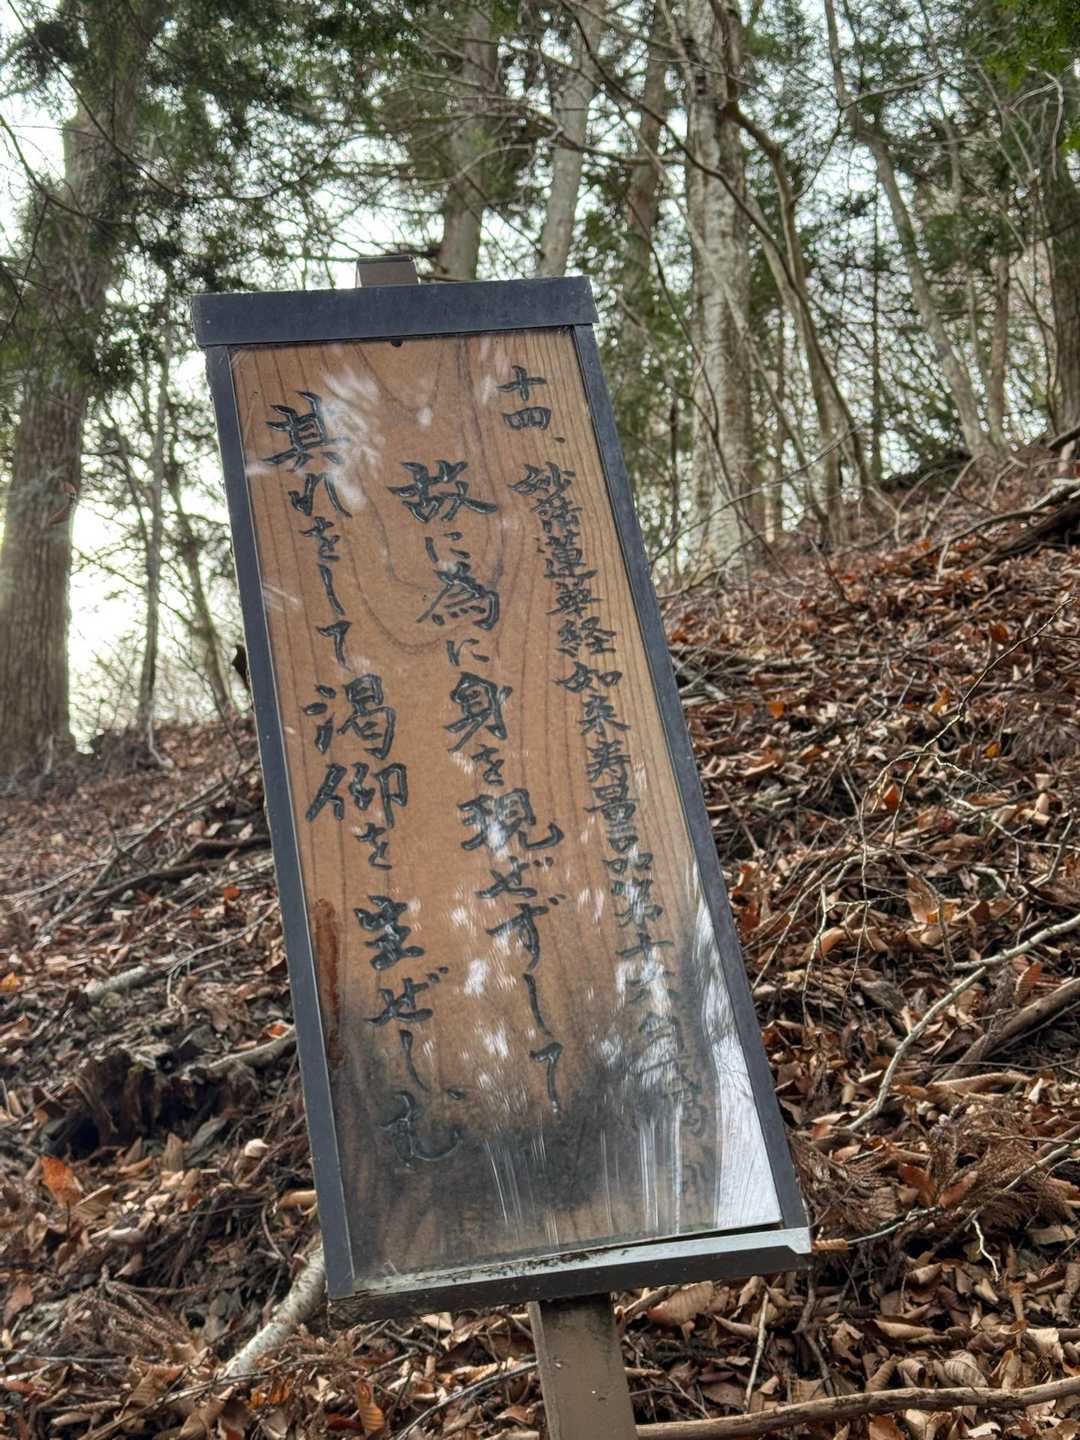 十四、妙法蓮華経如来寿量品第十六自我
故に為に身を現ぜずして
其れをして渇仰を生ぜしむ